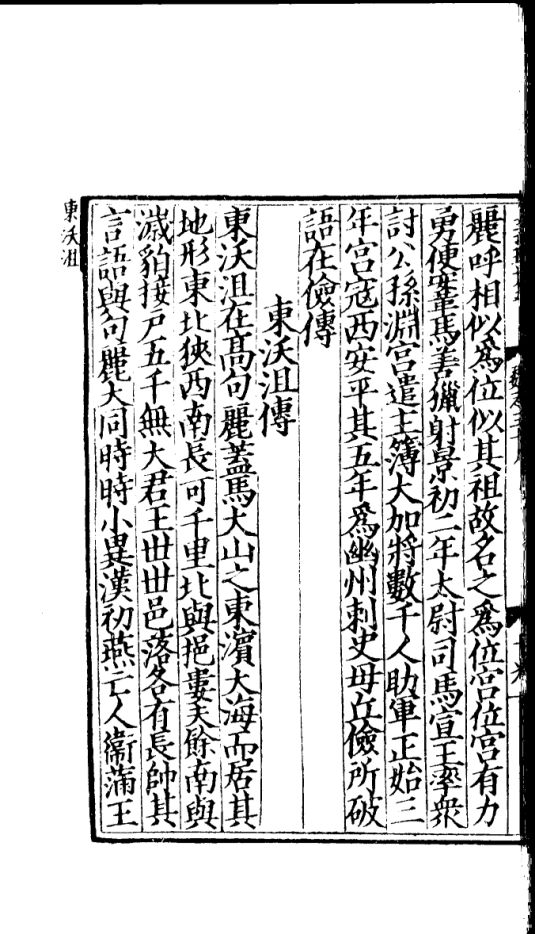 麗呼相似爲位似其祖故名之爲位宮位宮有力
勇便鞌馬善獵射景初二年太尉司馬宣王率衆
討公孫淵宮遣主簿大加將數千人助軍正始三
年宮寇西安平其五年爲幽州刺史毋丘儉所破
語在儉傳
東沃沮傳
東沃沮在髙句麗蓋馬大山之東濵大海而居其
地形東北狹西南長可千里北與挹婁夫餘南與
濊貊接戸五千無大君王丗丗邑落各有長帥其
言語與句麗大同時時小異漢初燕亡人衞蒲王
東沃沮